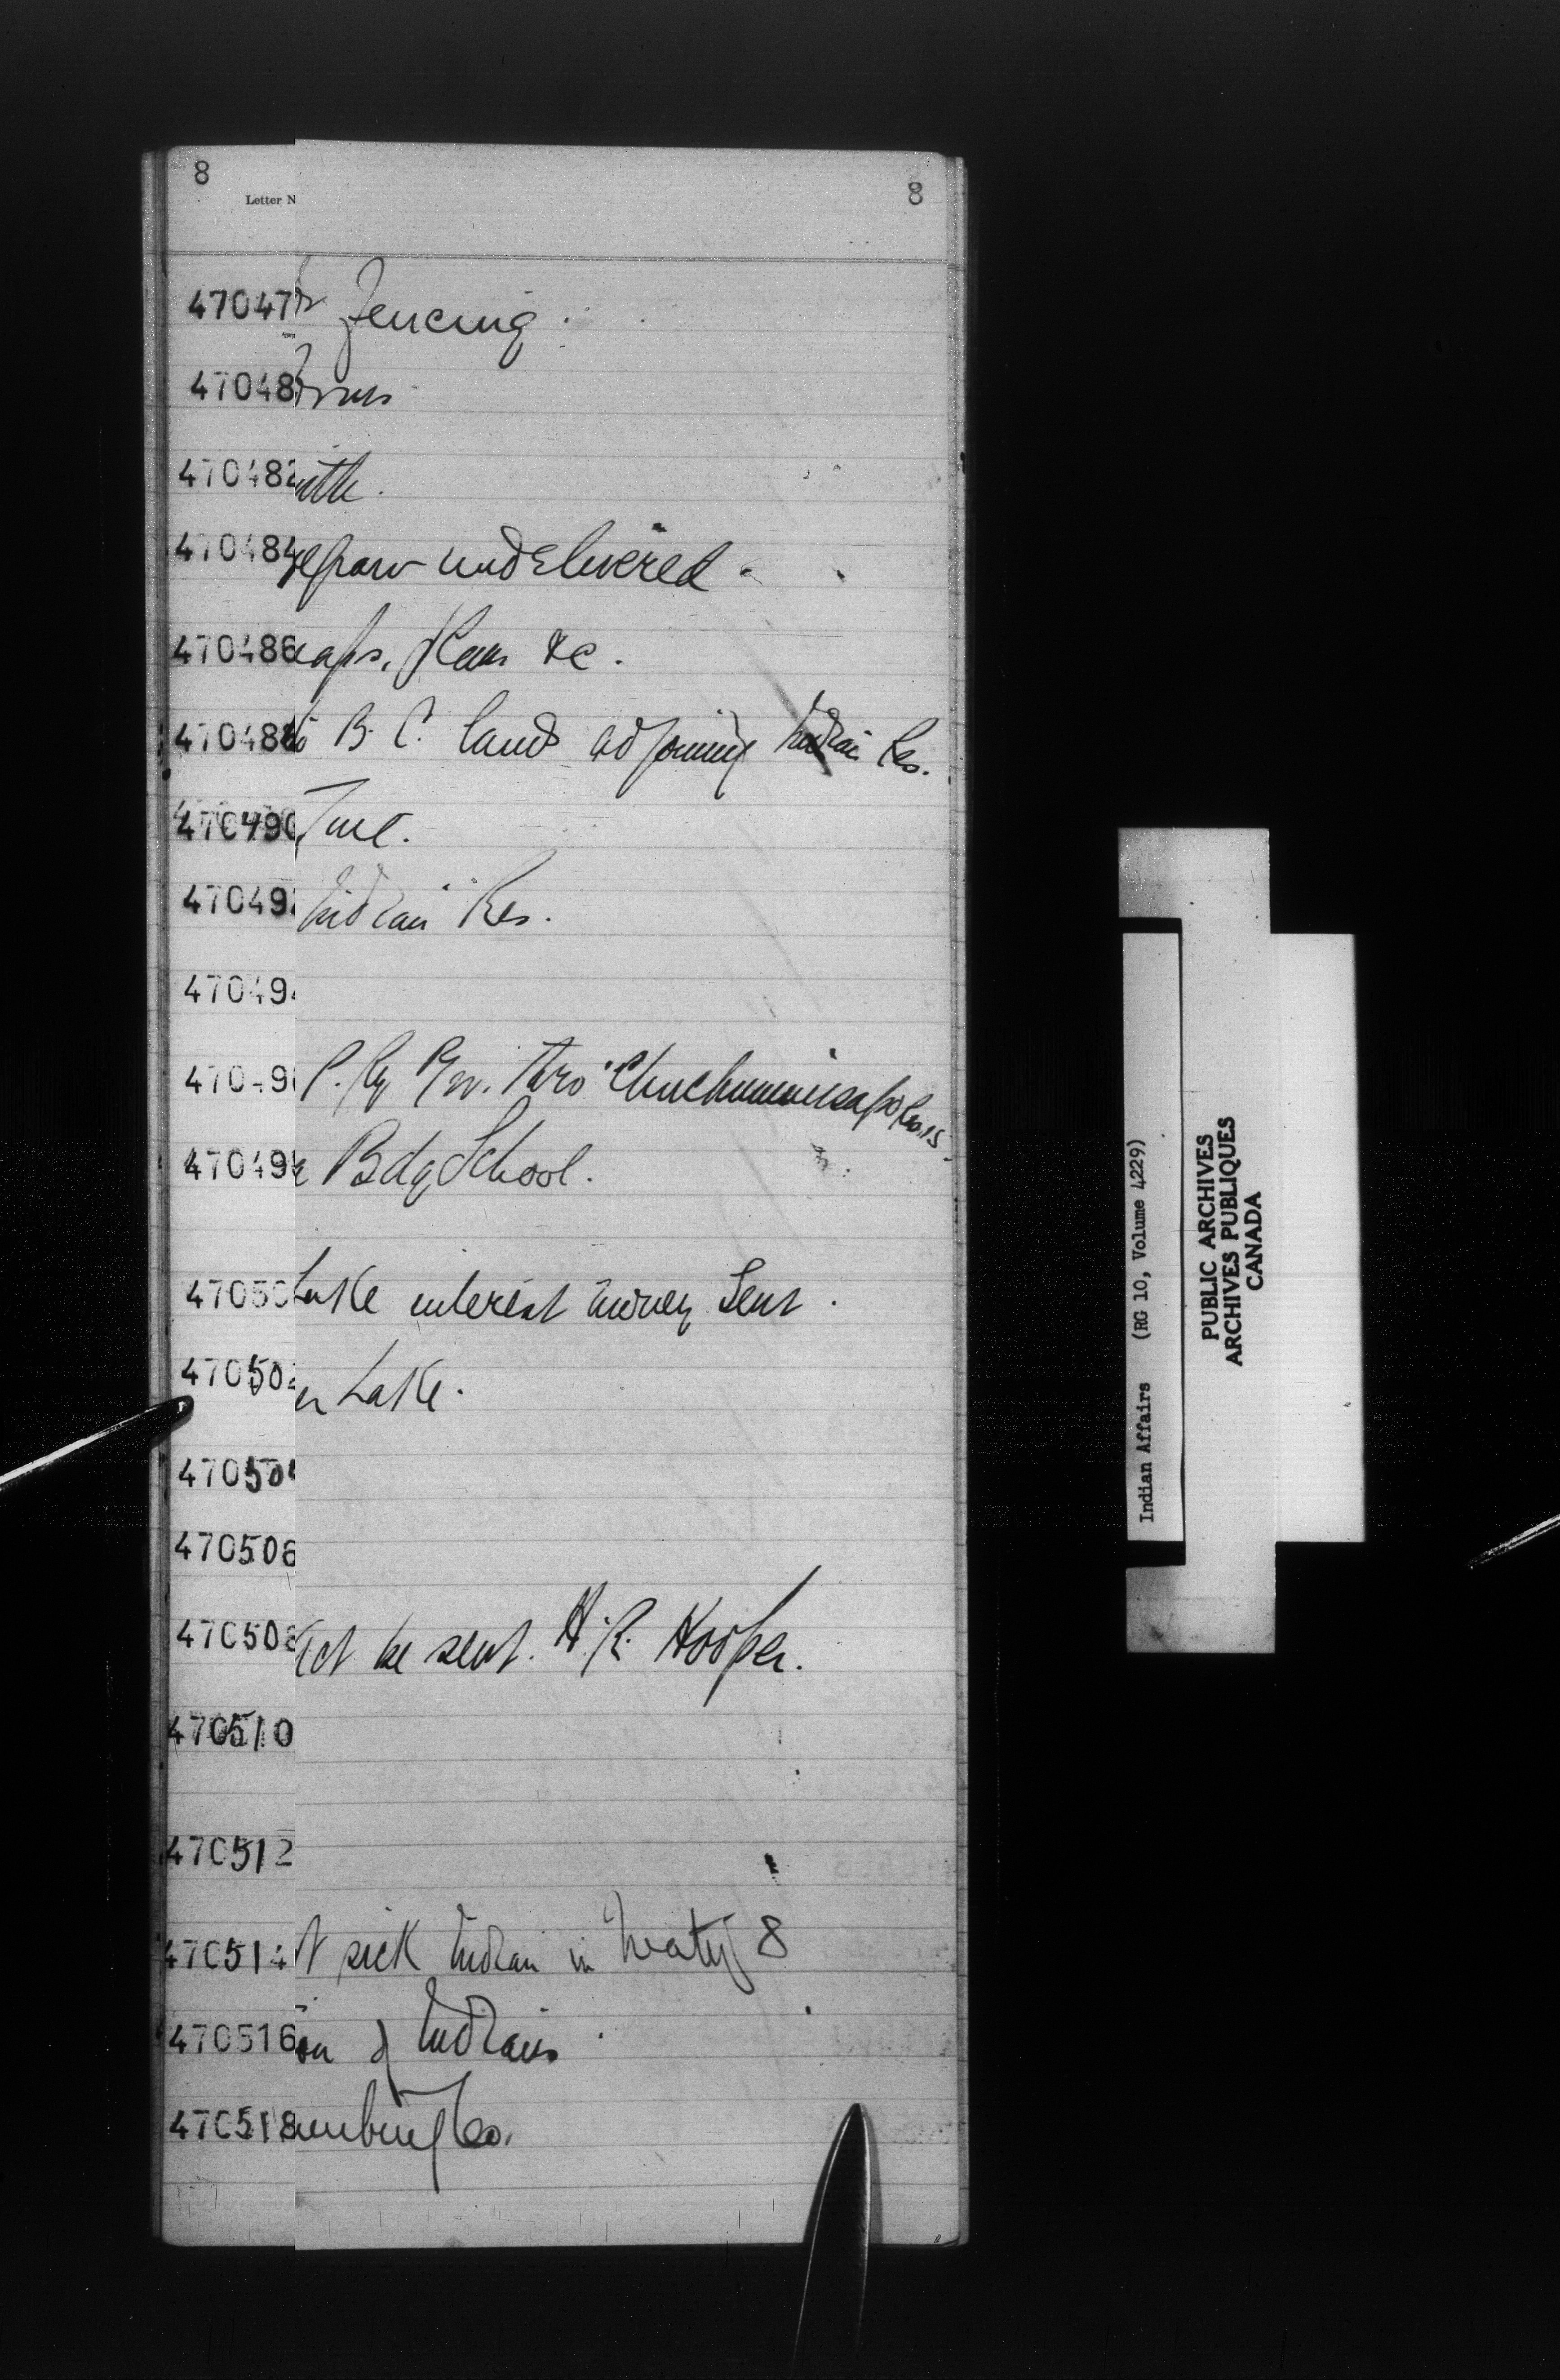 8 8
Letter N
47047 Fencing.
47048
470482
470484 undelivered.
470486 Plans &c.
470488 to B.C. land adjoining Indian Res.
470490
47049 Indian Res.
47049
47049 P. Ry R/W. thro'
47049 Bdg School.
47050 Lake interest money sent.
470502 Lake.
47050
470506
470508 Act be sent. H.R. Hooper.
470510
470512
470514 sick Indian in Treaty 8
470516 on of Indians
470518 Co.
Indian Affairs (RG 10, Volume 4229)
PUBLIC ARCHIVES
ARCHIVES PUBLIQUES
CANADA